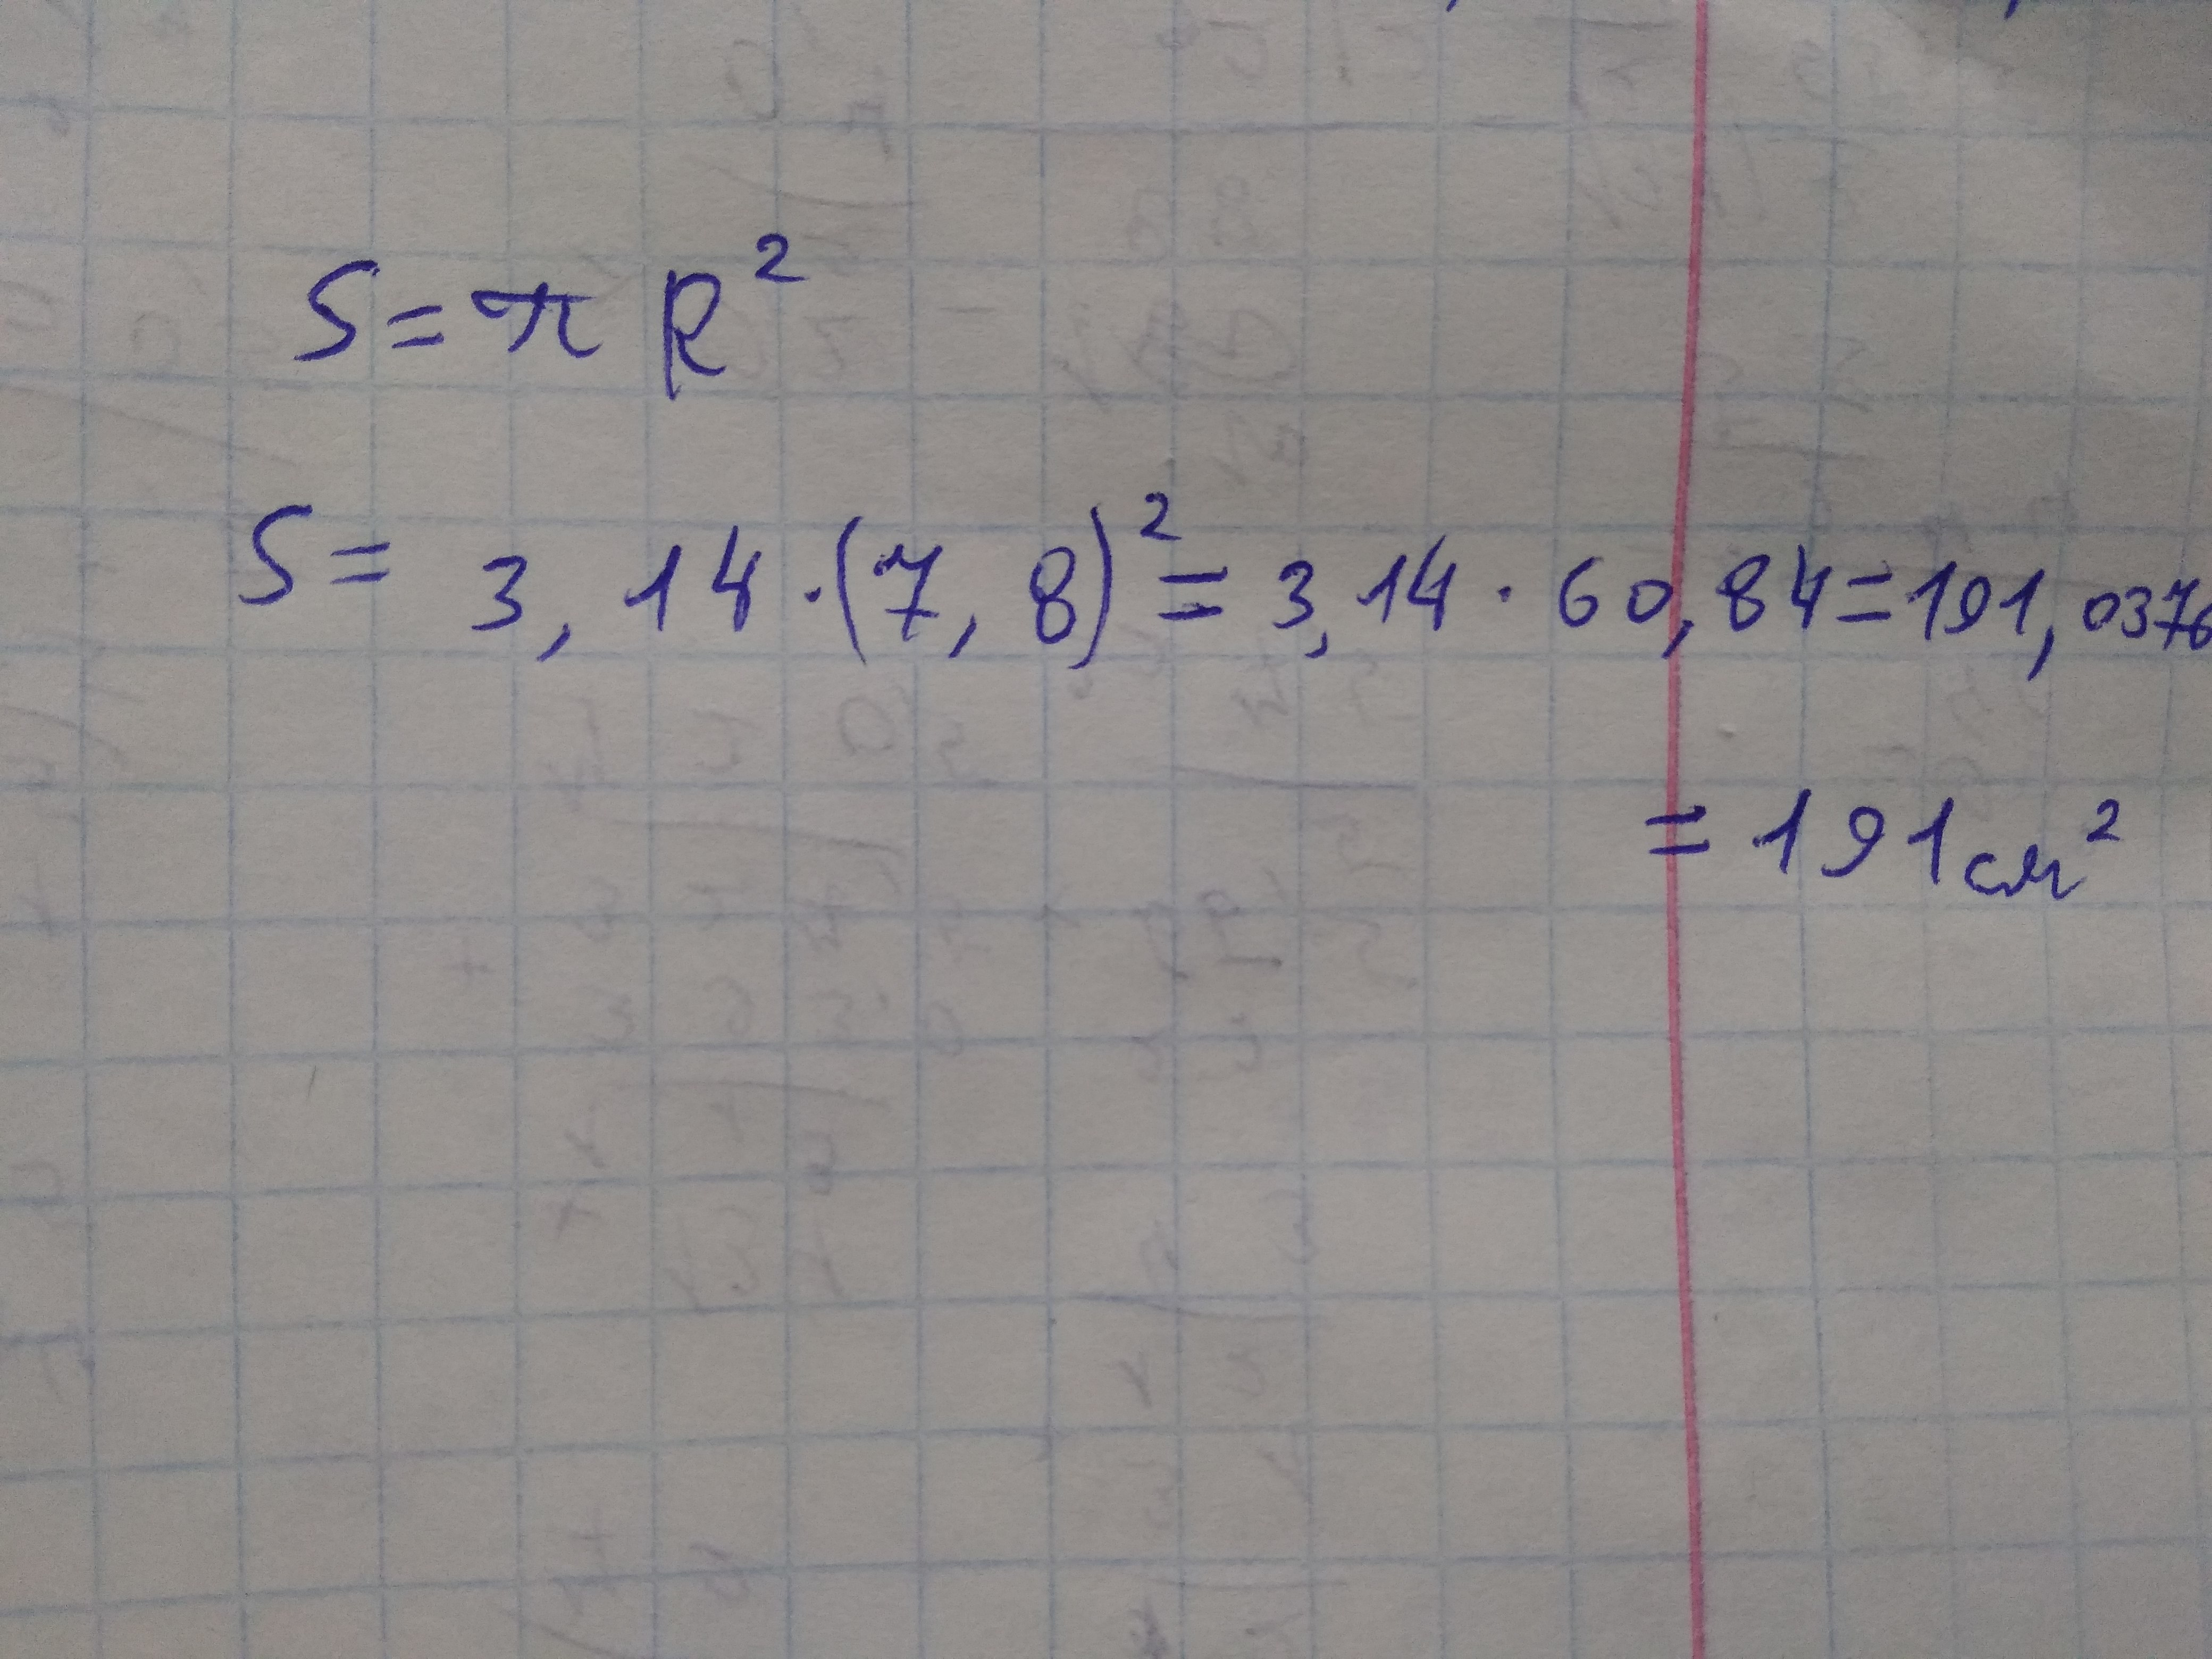 S = π R²
S = 3,14 · (7,8)² = 3,14 · 60,84 = 191,0376
= 191 см²